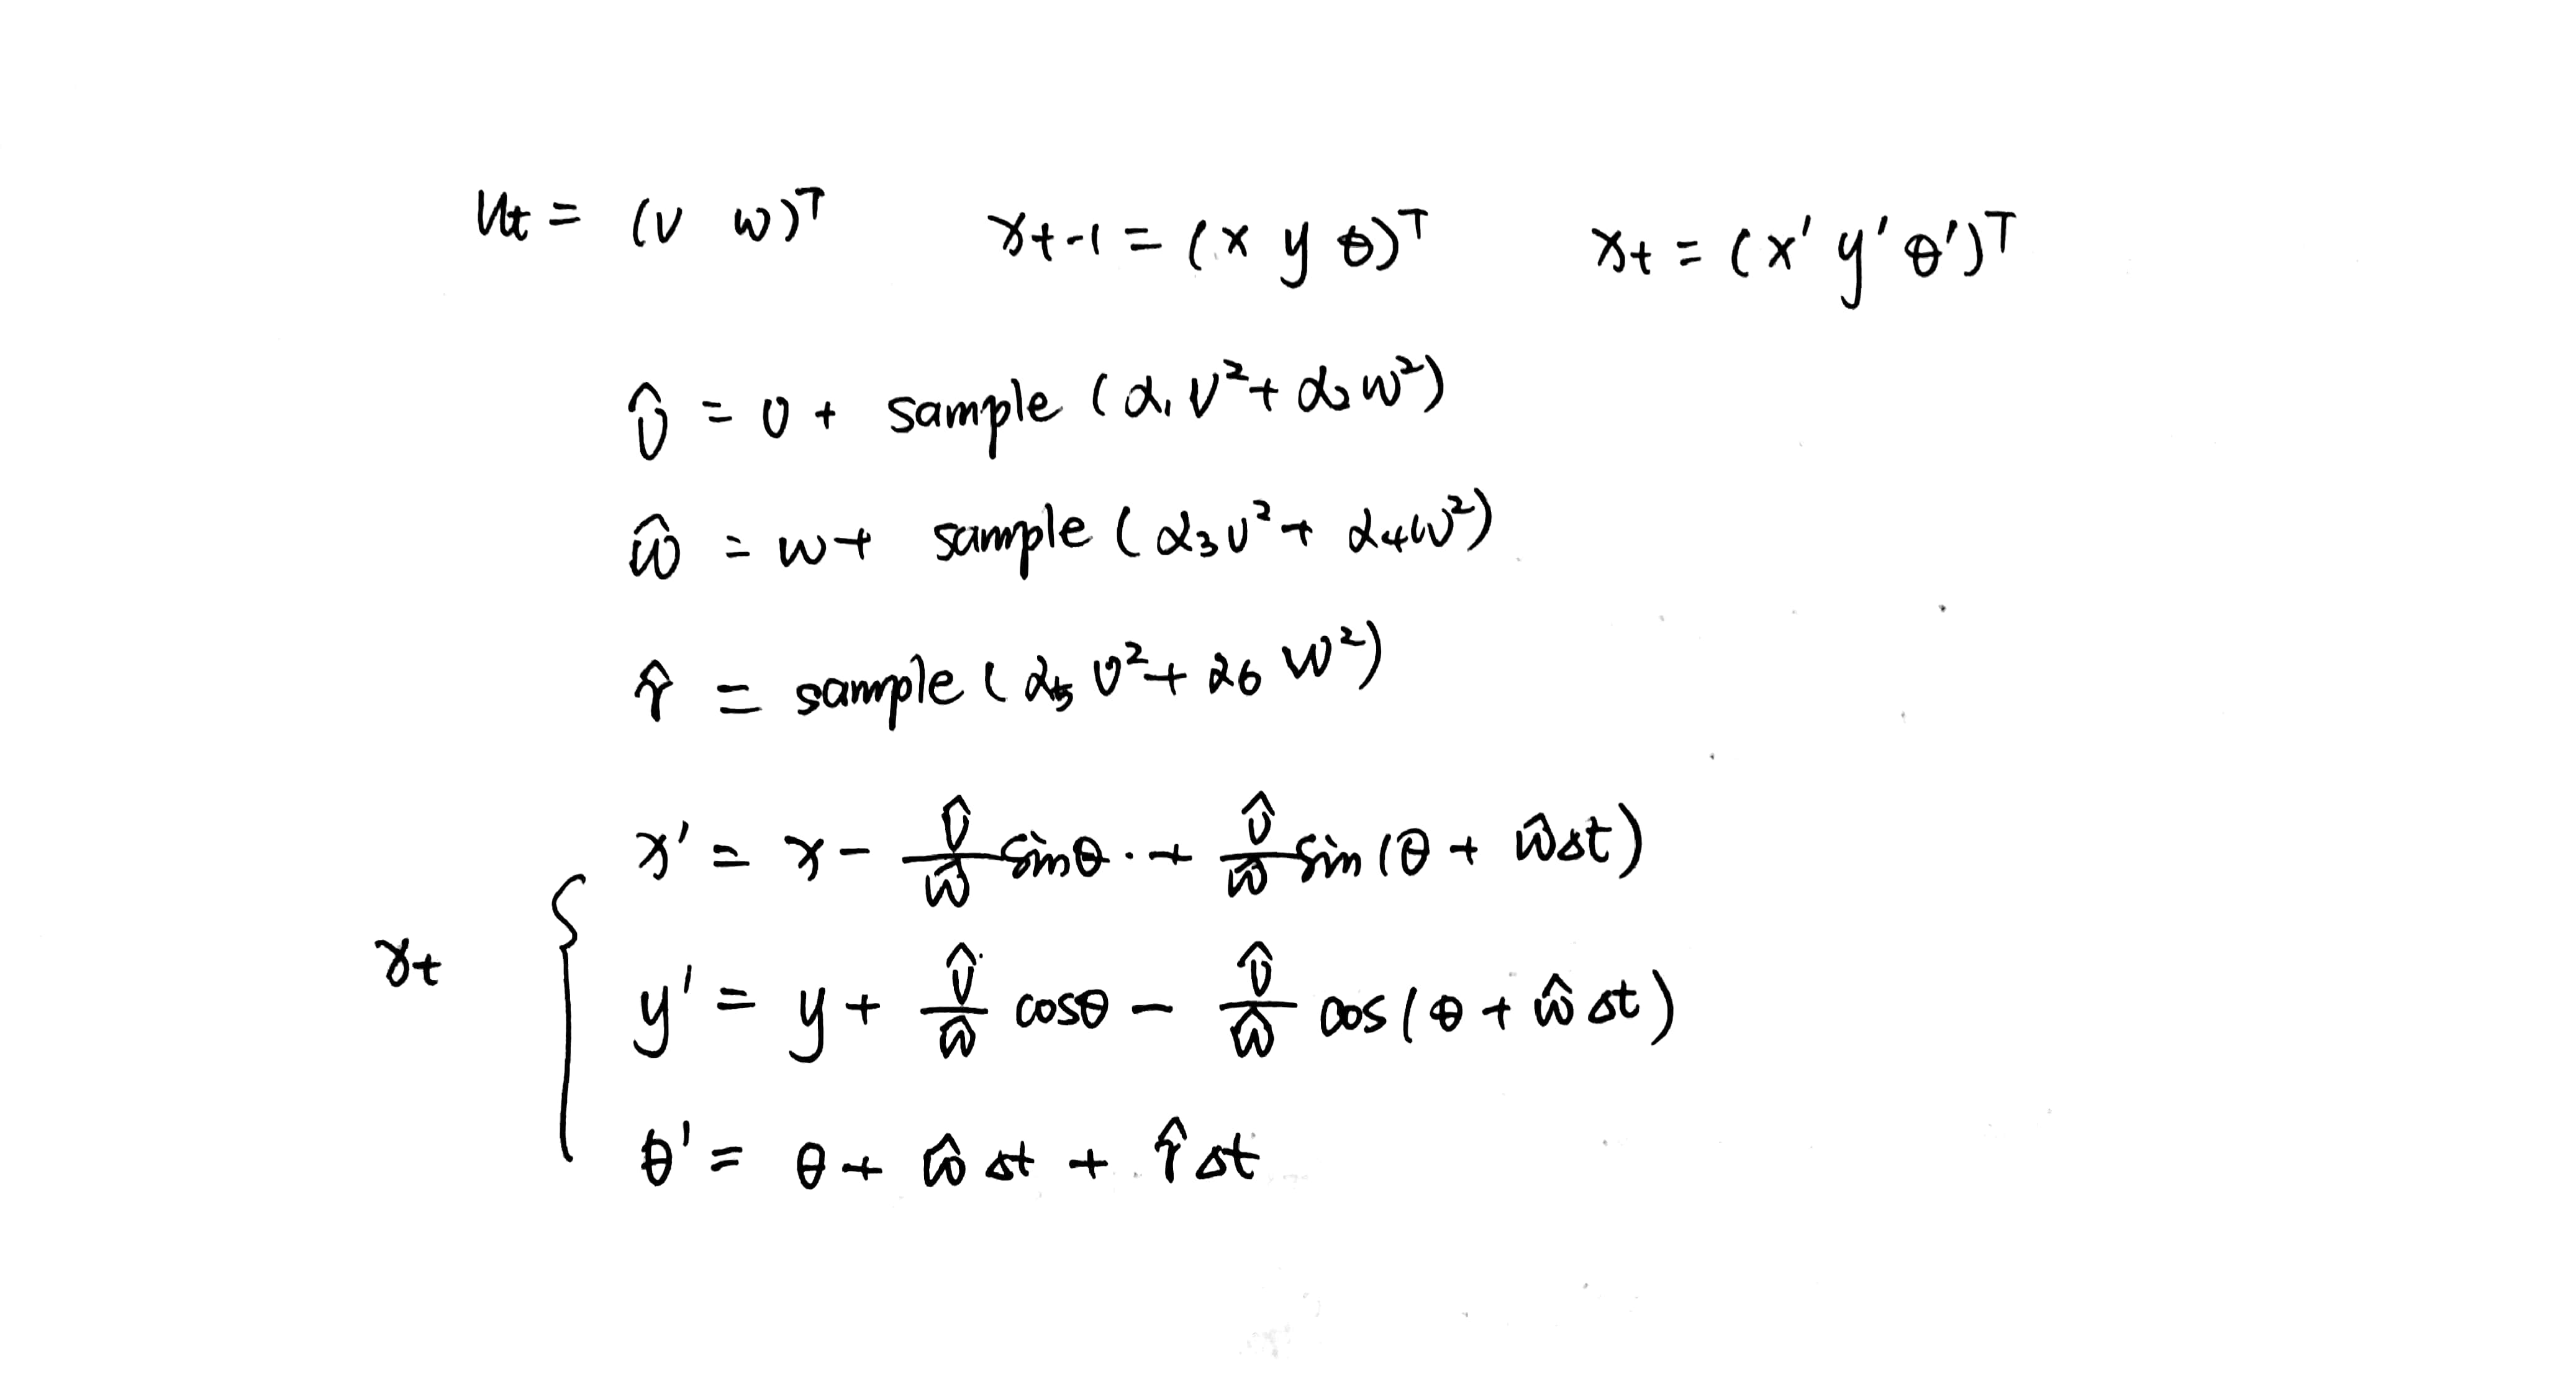 u_t = (v w)^T x_{t-1} = (x y θ)^T x_t = (x' y' θ')^T
v̂ = v + sample (α₁ v² + α₂ w²)
ŵ = w + sample (α₃ v² + α₄ w²)
r̂ = sample (α₅ v² + α₆ w²)
x' = x - v̂/ŵ sinθ + v̂/ŵ sin (θ + ŵΔt)
x_t { y' = y + v̂/ŵ cosθ - v̂/ŵ cos (θ + ŵΔt)
θ' = θ + ŵΔt + r̂Δt